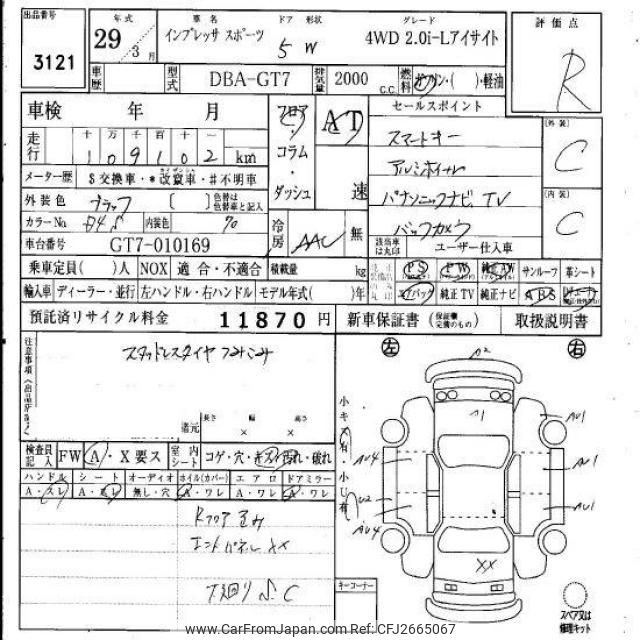 出品番号
3121
年式
29年3月
車名
インプレッサ スポーツ
ドア 形状
5 W
グレード
4WD 2.0i-Lアイサイト
評価点
R
車歴
型式
DBA-GT7
排気量
2000
C.C.
燃料
ガソリン・( )・軽油
車検 年 月
走行
十 万 千 百 十 一
109102 km
メーター歴
$ 交換車・*改竄車・#不明車
外装色
ブラック
[ ]
色替は色替車色と記入
カラーNo
D4S
内装色
70
車台番号
GT7-010169
フロア・コラム・ダッシュ
AT
速
冷房
AAC
無
セールスポイント
スマートキー
アルミホイール
パナソニックナビ, TV
バックカメラ
ユーザー仕入車
外装
C
内装
C
乗車定員( )人
NOX
適合・不適合
積載量
kg
PS
PW
純正AW
サンルーフ
革シート
輸入車
ディーラー・並行
左ハンドル・右ハンドル
モデル年式( )年
エアバッグ
純正TV
純正ナビ
ABS
預託済リサイクル料金
11870円
新車保証書
(保証継承完備のもの)
取扱説明書
注意事項
スタッドレスタイヤ つみこみ
還元
長さ 幅 高さ
× ×
左
右
小キズ有・小じ有
A2
A1
AU1
AU4
AU1
AU2
AU1
AU4
XX
検査員記入
FW
A・X要ス
室内シート
コゲ・穴・キズ・汚れ・破れ
ハンドル
シート
オーディオ
ホイル(カバー)
エアロ
ドアミラー
A・スレ
A・スレ
無し・穴
A・ワレ
A・ワレ
A・ワレ
Rフロア歪み
エンドパネル XX
下廻りS, C
キーコーナー
スペア又は修理キット
www.CarFromJapan.com Ref: CFJ2665067